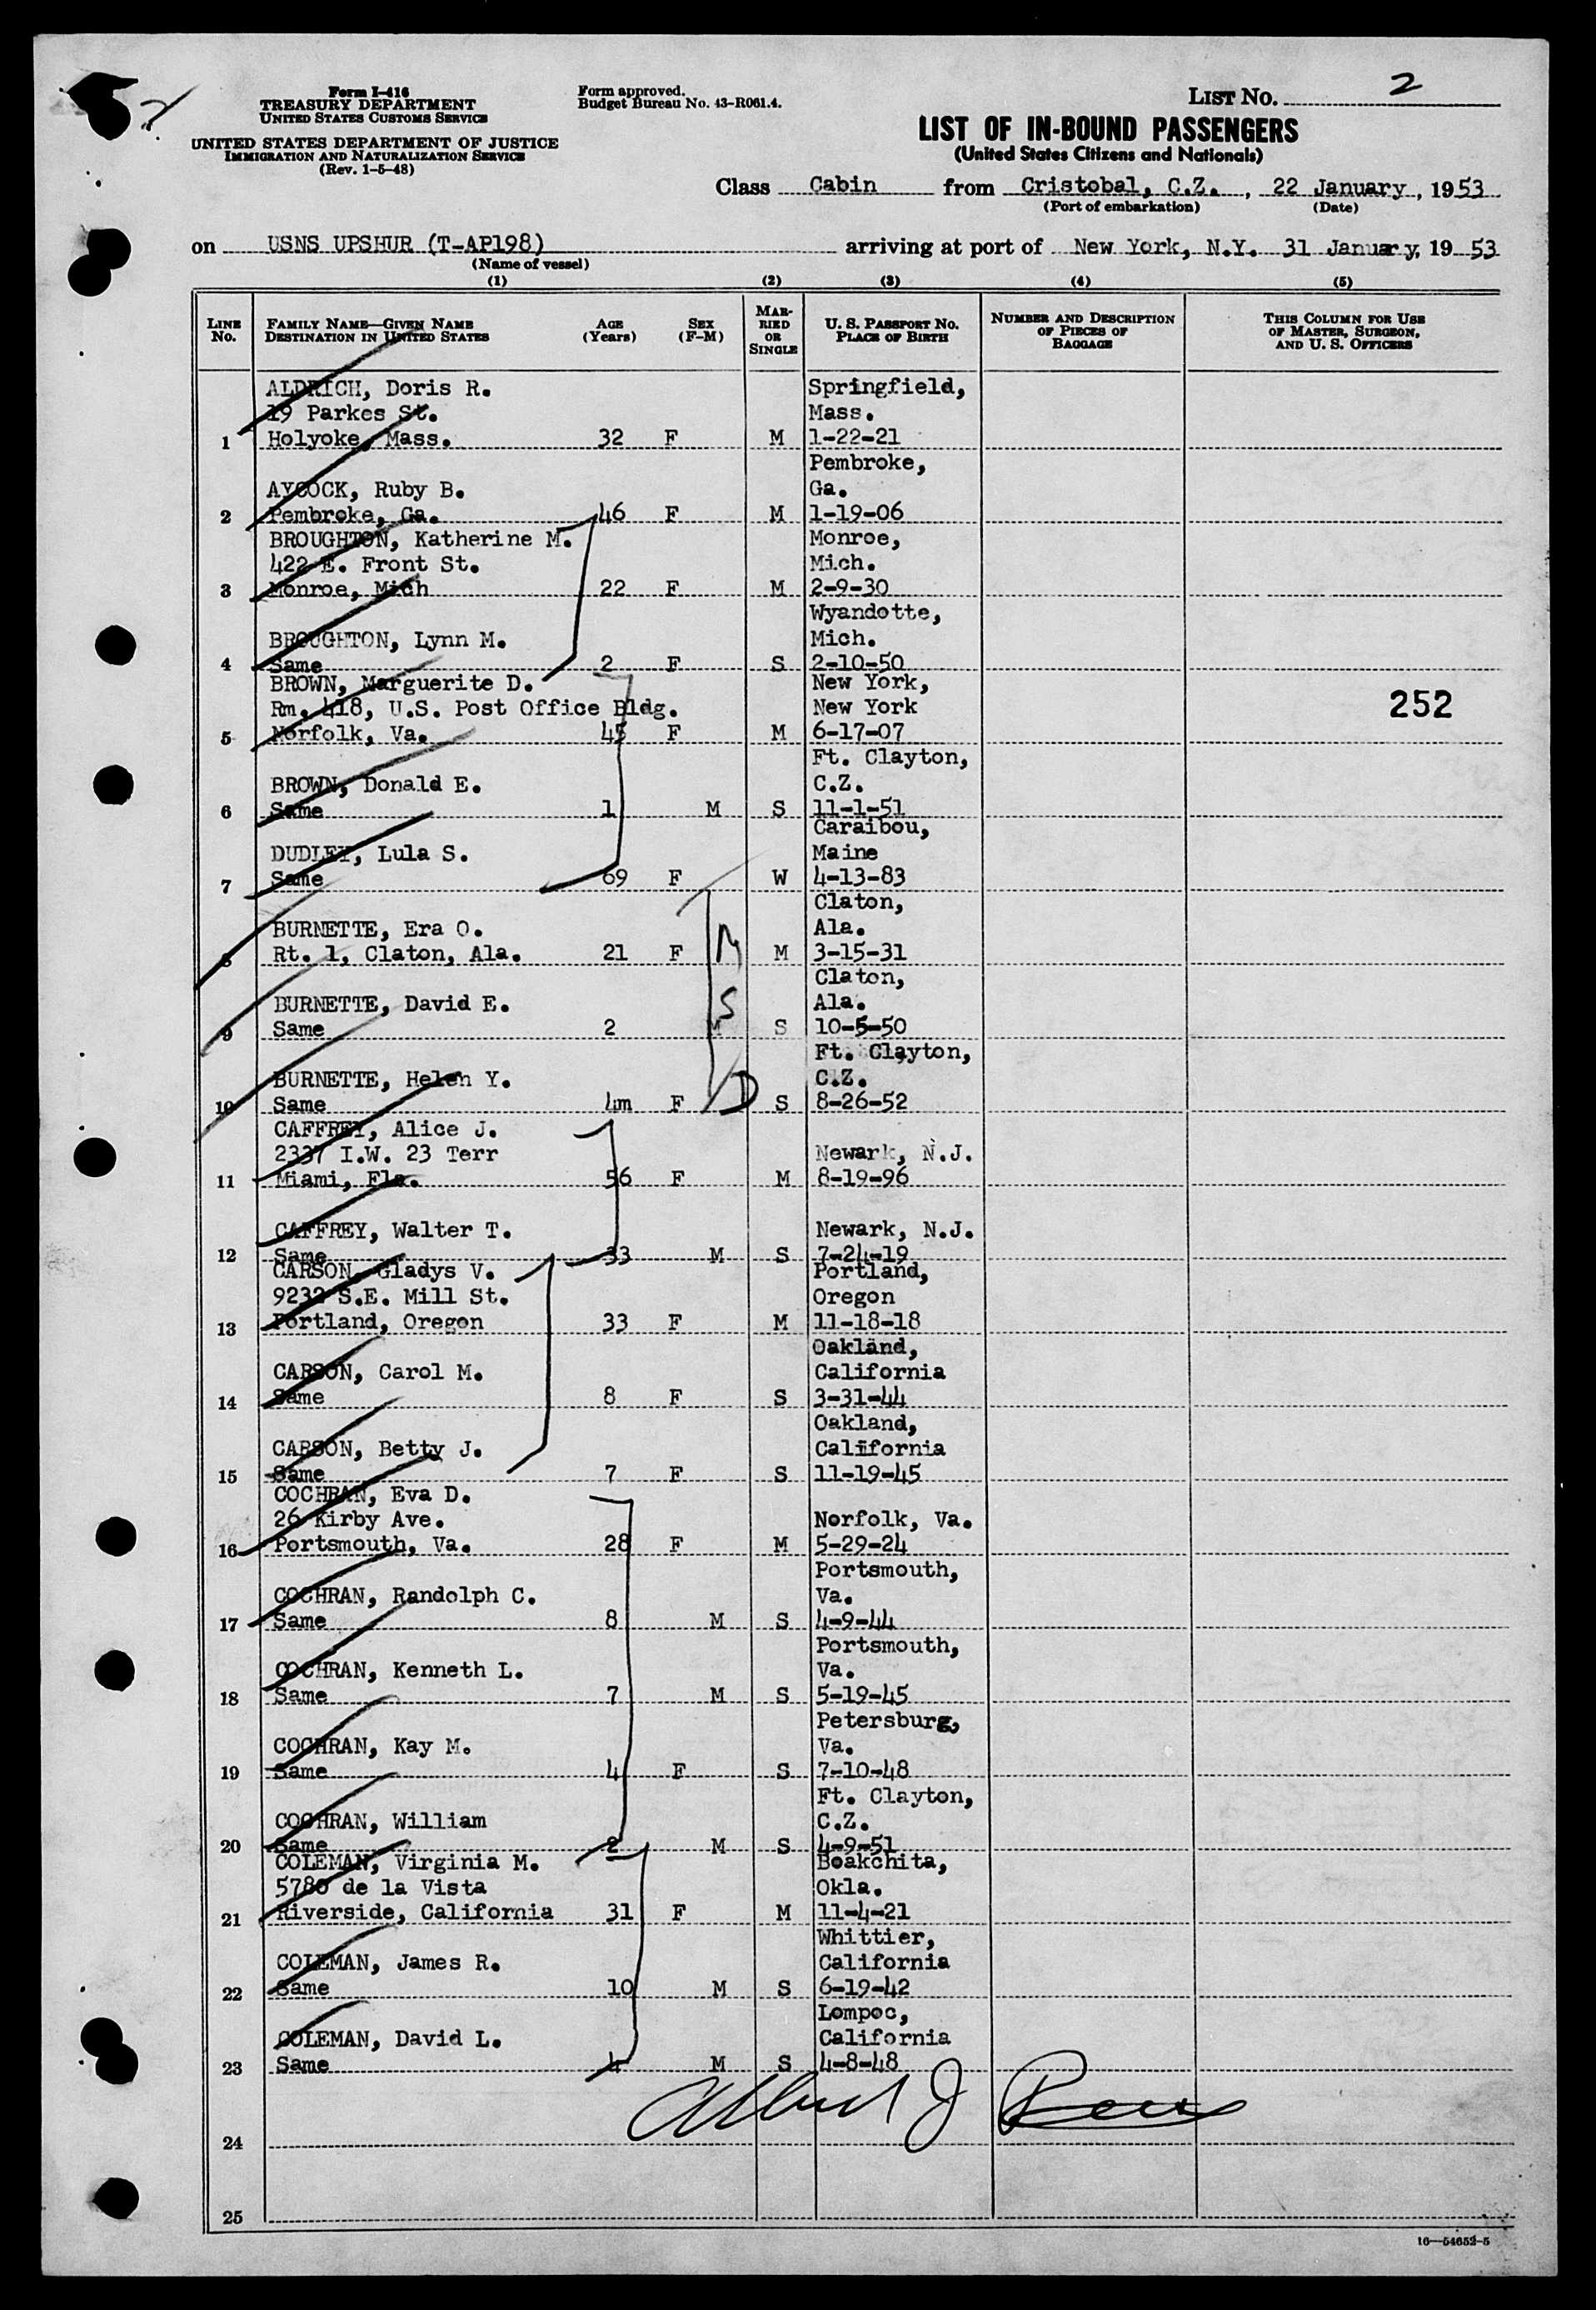 Form I-416
TREASURY DEPARTMENT
UNITED STATES CUSTOMS SERVICE
UNITED STATES DEPARTMENT OF JUSTICE
IMMIGRATION AND NATURALIZATION SERVICE
(Rev. 1-5-48)
Form approved.
Budget Bureau No. 43-R061.4.
LIST No. 2
LIST OF IN-BOUND PASSENGERS
(United States Citizens and Nationals)
Class Cabin from Cristobal, C.Z., 22 January, 1953
(Port of embarkation) (Date)
on USNS UPSHUR (T-AP198) arriving at port of New York, N.Y. 31 January, 19 53
(Name of vessel)
(1) (2) (3) (4) (5)
LINE No. FAMILY NAME—GIVEN NAME DESTINATION IN UNITED STATES AGE (Years) SEX (F-M) MARRIED OR SINGLE U. S. PASSPORT No. PLACE OF BIRTH NUMBER AND DESCRIPTION OF PIECES OF BAGGAGE THIS COLUMN FOR USE OF MASTER, SURGEON, AND U. S. OFFICERS
ALDRICH, Doris R. Springfield,
19 Parkes St. Mass.
1 Holyoke, Mass. 32 F M 1-22-21
Pembroke,
AYCOCK, Ruby B. Ga.
2 Pembroke, Ga. 46 F M 1-19-06
BROUGHTON, Katherine M. Monroe,
422 E. Front St. Mich.
3 Monroe, Mich 22 F M 2-9-30
Wyandotte,
BROUGHTON, Lynn M. Mich.
4 Same 2 F S 2-10-50
BROWN, Marguerite D. New York,
Rm. 418, U.S. Post Office Bldg. New York
5 Norfolk, Va. 45 F M 6-17-07
252
Ft. Clayton,
BROWN, Donald E. C.Z.
6 Same 1 M S 11-1-51
Caraibou,
DUDLEY, Lula S. Maine
7 Same 69 F W 4-13-83
Claton,
BURNETTE, Era O. Ala.
8 Rt. 1, Claton, Ala. 21 F M 3-15-31
Claton,
BURNETTE, David E. Ala.
9 Same 2 M S 10-5-50
Ft. Clayton,
BURNETTE, Helen Y. C.Z.
10 Same 4m F S 8-26-52
CAFFREY, Alice J.
2337 I.W. 23 Terr Newark, N.J.
11 Miami, Fla. 56 F M 8-19-96
CAFFREY, Walter T. Newark, N.J.
12 Same 33 M S 7-24-19
CARSON, Gladys V. Portland,
9232 S.E. Mill St. Oregon
13 Portland, Oregon 33 F M 11-18-18
Oakland,
CARSON, Carol M. California
14 Same 8 F S 3-31-44
Oakland,
CARSON, Betty J. California
15 Same 7 F S 11-19-45
COCHRAN, Eva D.
26 Kirby Ave. Norfolk, Va.
16 Portsmouth, Va. 28 F M 5-29-24
Portsmouth,
COCHRAN, Randolph C. Va.
17 Same 8 M S 4-9-44
Portsmouth,
COCHRAN, Kenneth L. Va.
18 Same 7 M S 5-19-45
Petersburg,
COCHRAN, Kay M. Va.
19 Same 4 F S 7-10-48
Ft. Clayton,
COCHRAN, William C.Z.
20 Same 2 M S 4-9-51
COLEMAN, Virginia M. Boakchita,
5780 de la Vista Okla.
21 Riverside, California 31 F M 11-4-21
Whittier,
COLEMAN, James R. California
22 Same 10 M S 6-19-42
Lompoc,
COLEMAN, David L. California
23 Same 4 M S 4-8-48
Albert J
24
25
16—54652-5